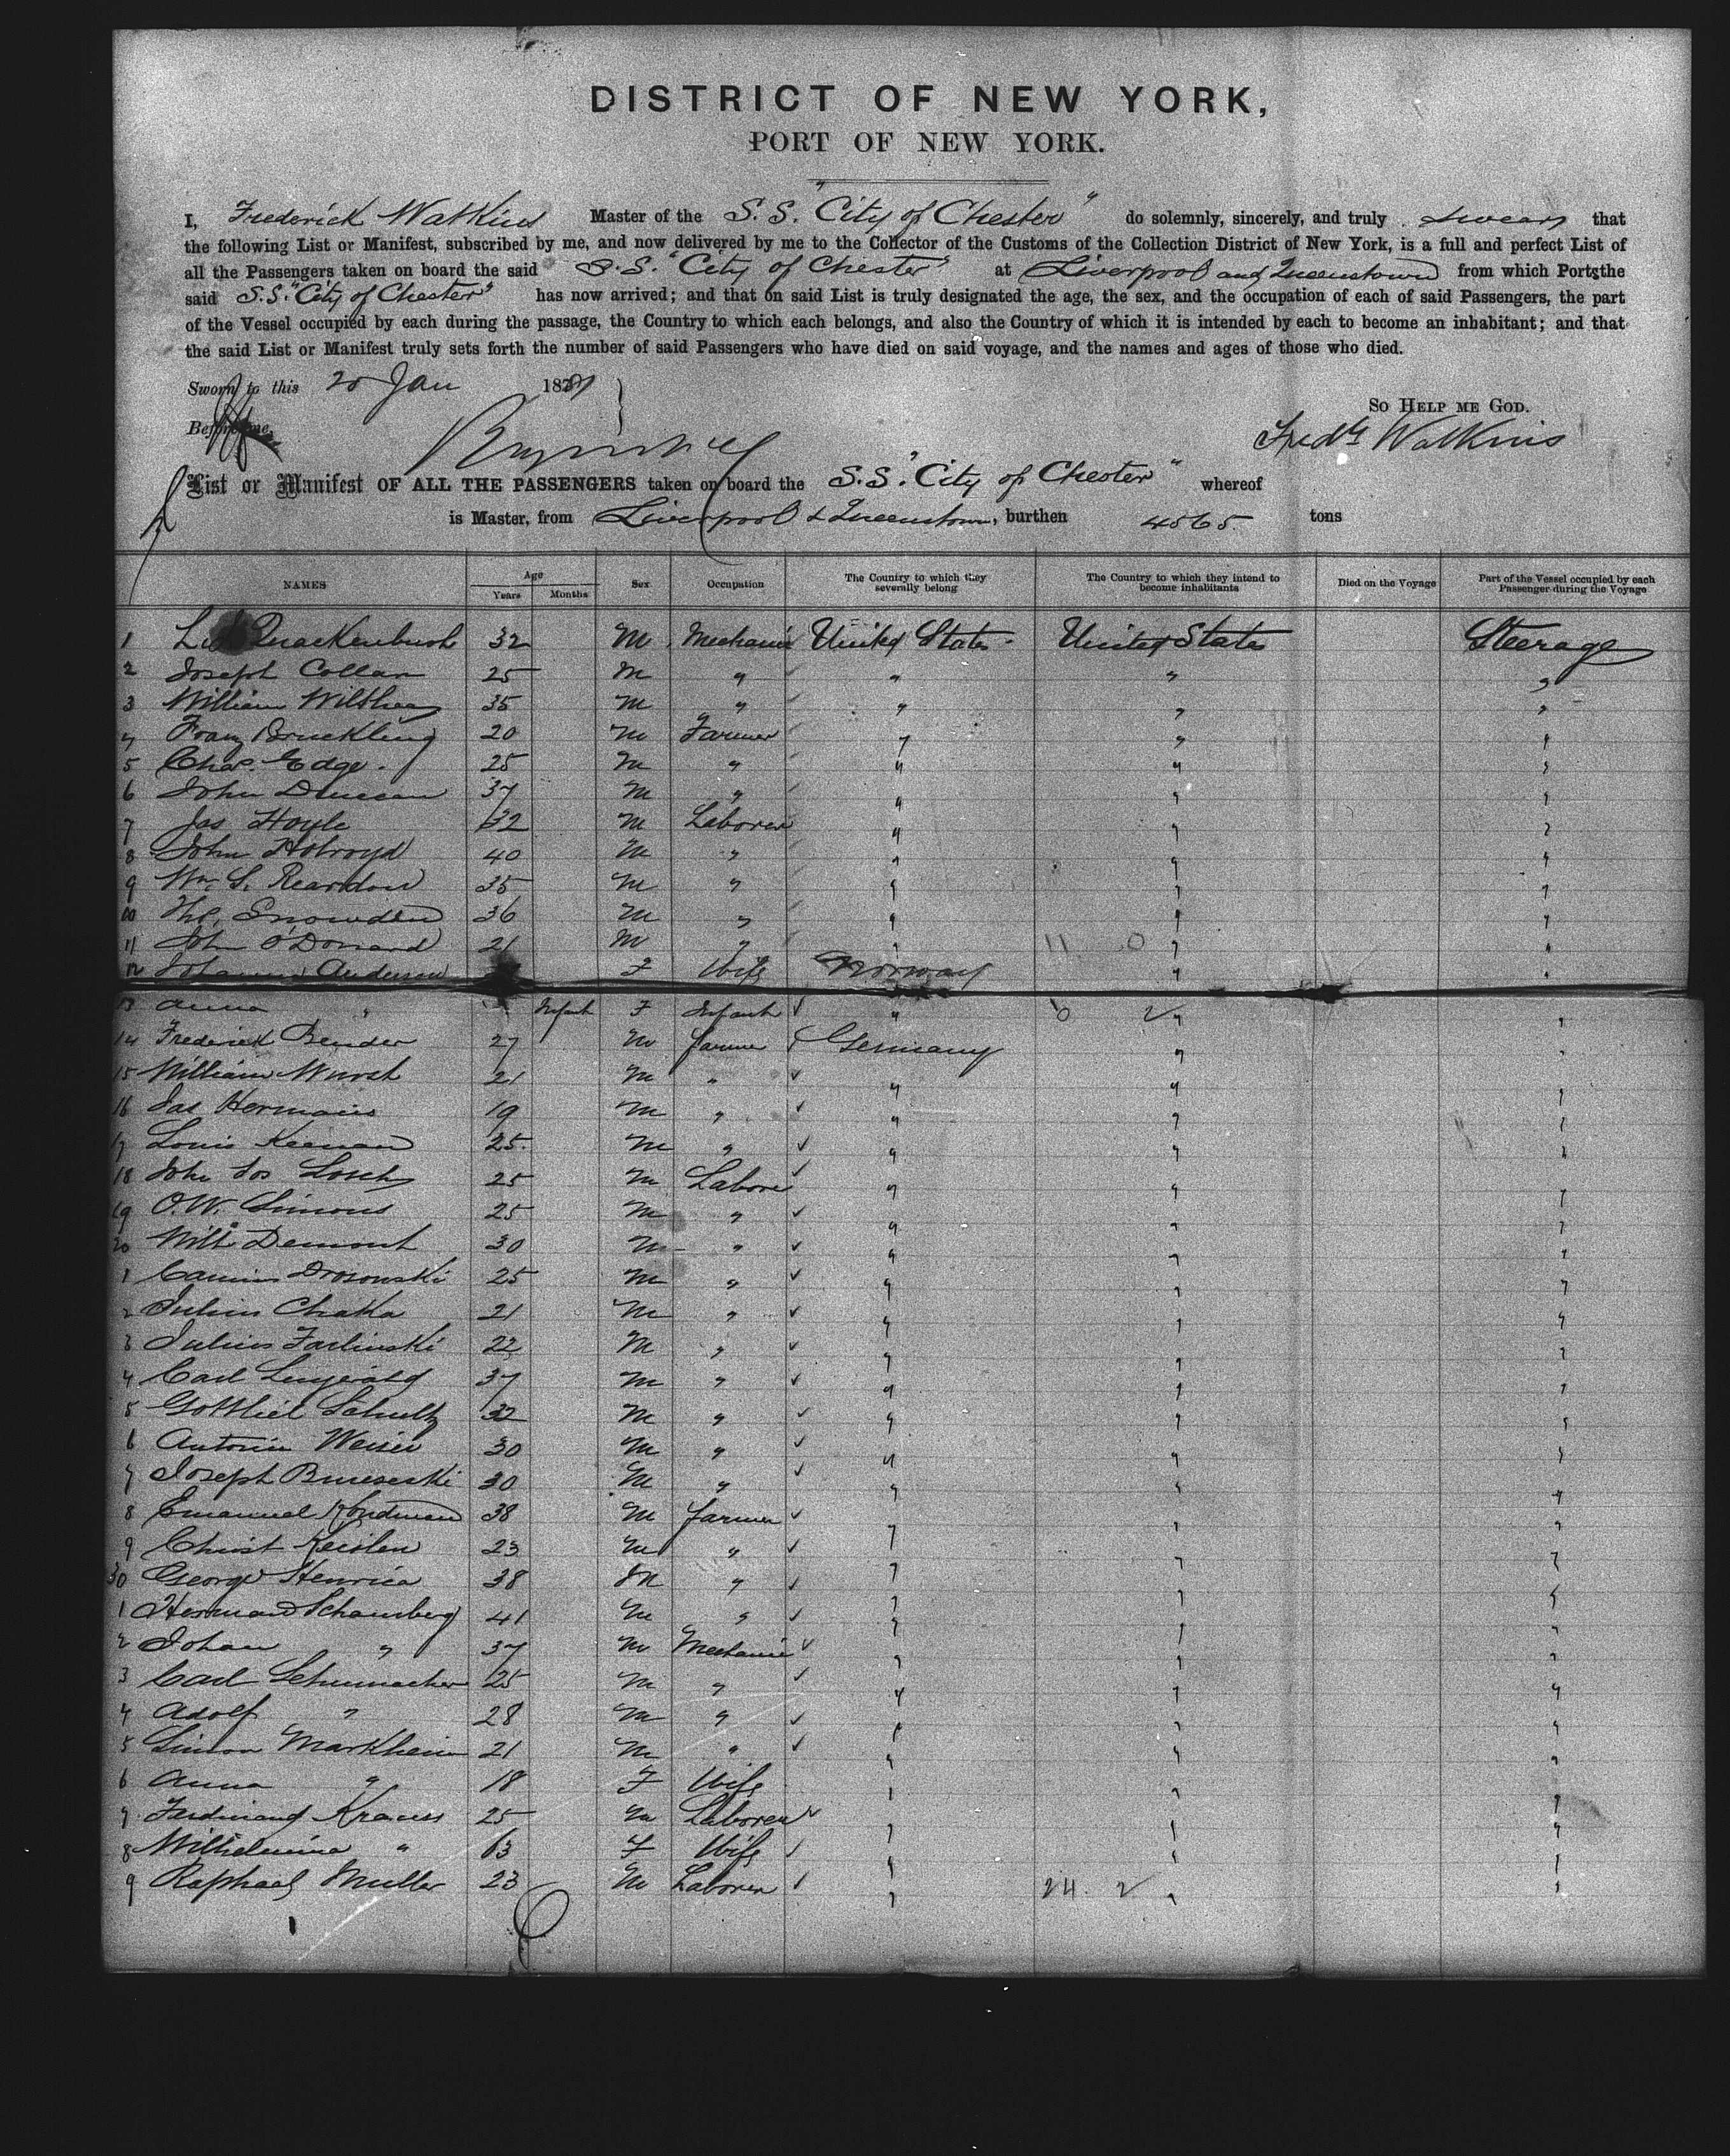 DISTRICT OF NEW YORK,
PORT OF NEW YORK.
I, Frederick Watkins Master of the S.S. "City of Chester" do solemnly, sincerely, and truly swear that
the following List or Manifest, subscribed by me, and now delivered by me to the Collector of the Customs of the Collection District of New York, is a full and perfect List of
all the Passengers taken on board the said S.S. "City of Chester" at Liverpool and Queenstown from which Ports the
said S.S. "City of Chester" has now arrived; and that on said List is truly designated the age, the sex, and the occupation of each of said Passengers, the part
of the Vessel occupied by each during the passage, the Country to which each belongs, and also the Country of which it is intended by each to become an inhabitant; and that
the said List or Manifest truly sets forth the number of said Passengers who have died on said voyage, and the names and ages of those who died.
Sworn to this 20 Jan 187
So Help me God.
Before me,
Fredk Watkins
List or Manifest OF ALL THE PASSENGERS taken on board the S.S. "City of Chester" whereof
is Master, from Liverpool & Queenstown, burthen 4565 tons
NAMES Age Years Months Sex Occupation The Country to which they severally belong The Country to which they intend to become inhabitants Died on the Voyage Part of the Vessel occupied by each Passenger during the Voyage
1 Quackenbush 32 M Mechanic United States United States Steerage
2 Joseph Collan 25 M " " " "
3 William 35 M " " " "
4 Franz 20 M Farmer " " "
5 Chas. Edge 25 M " " " "
6 John Duncan 37 M " " " "
7 Jas Hoyle 32 M Laborer " " "
8 John Holroyd 40 M " " " "
9 Wm. S. Reardon 35 M " " " "
10 Snowden 36 M " " " "
11 John O'Donnard 21 M " " 11 0 " "
12 Anderson F Wife Norway " "
13 Anna " Infant F Infant " 6 2 " "
14 Frederick Bender 27 M Farmer Germany " "
15 William Wurst 21 M " " " "
16 Jas Hermains 19 M " " " "
17 Louis Keenan 25 M " " " "
18 John Jos Losch 25 M Labore " " "
19 O.W. Simons 25 M " " " "
20 Demont 30 M " " " "
1 Drosonski 25 M " " " "
2 Julius Chaka 21 M " " " "
3 Julius Farlinski 22 M " " " "
4 Carl 37 M " " " "
5 Gottlieb Schultz 32 M " " " "
6 Weiser 30 M " " " "
7 Joseph 30 M " " " "
8 Emanuel 38 M Farmer " " "
9 Christ Keislen 23 M " " " "
30 George Henrica 38 M " " " "
1 Hermand Schamberg 41 M " " " "
2 Johan " 37 M Mechanic " " "
3 Carl Schumacher 25 M " " " "
4 Adolf " 28 M " " " "
5 Simon Markheim 21 M " " " "
6 Anna " 18 F Wife " " "
7 Ferdinand Krauss 25 M Laborer " " "
8 Wilhelmina " 63 F Wife " " "
9 Raphael Muller 23 M Laborer " 24. 2 " "